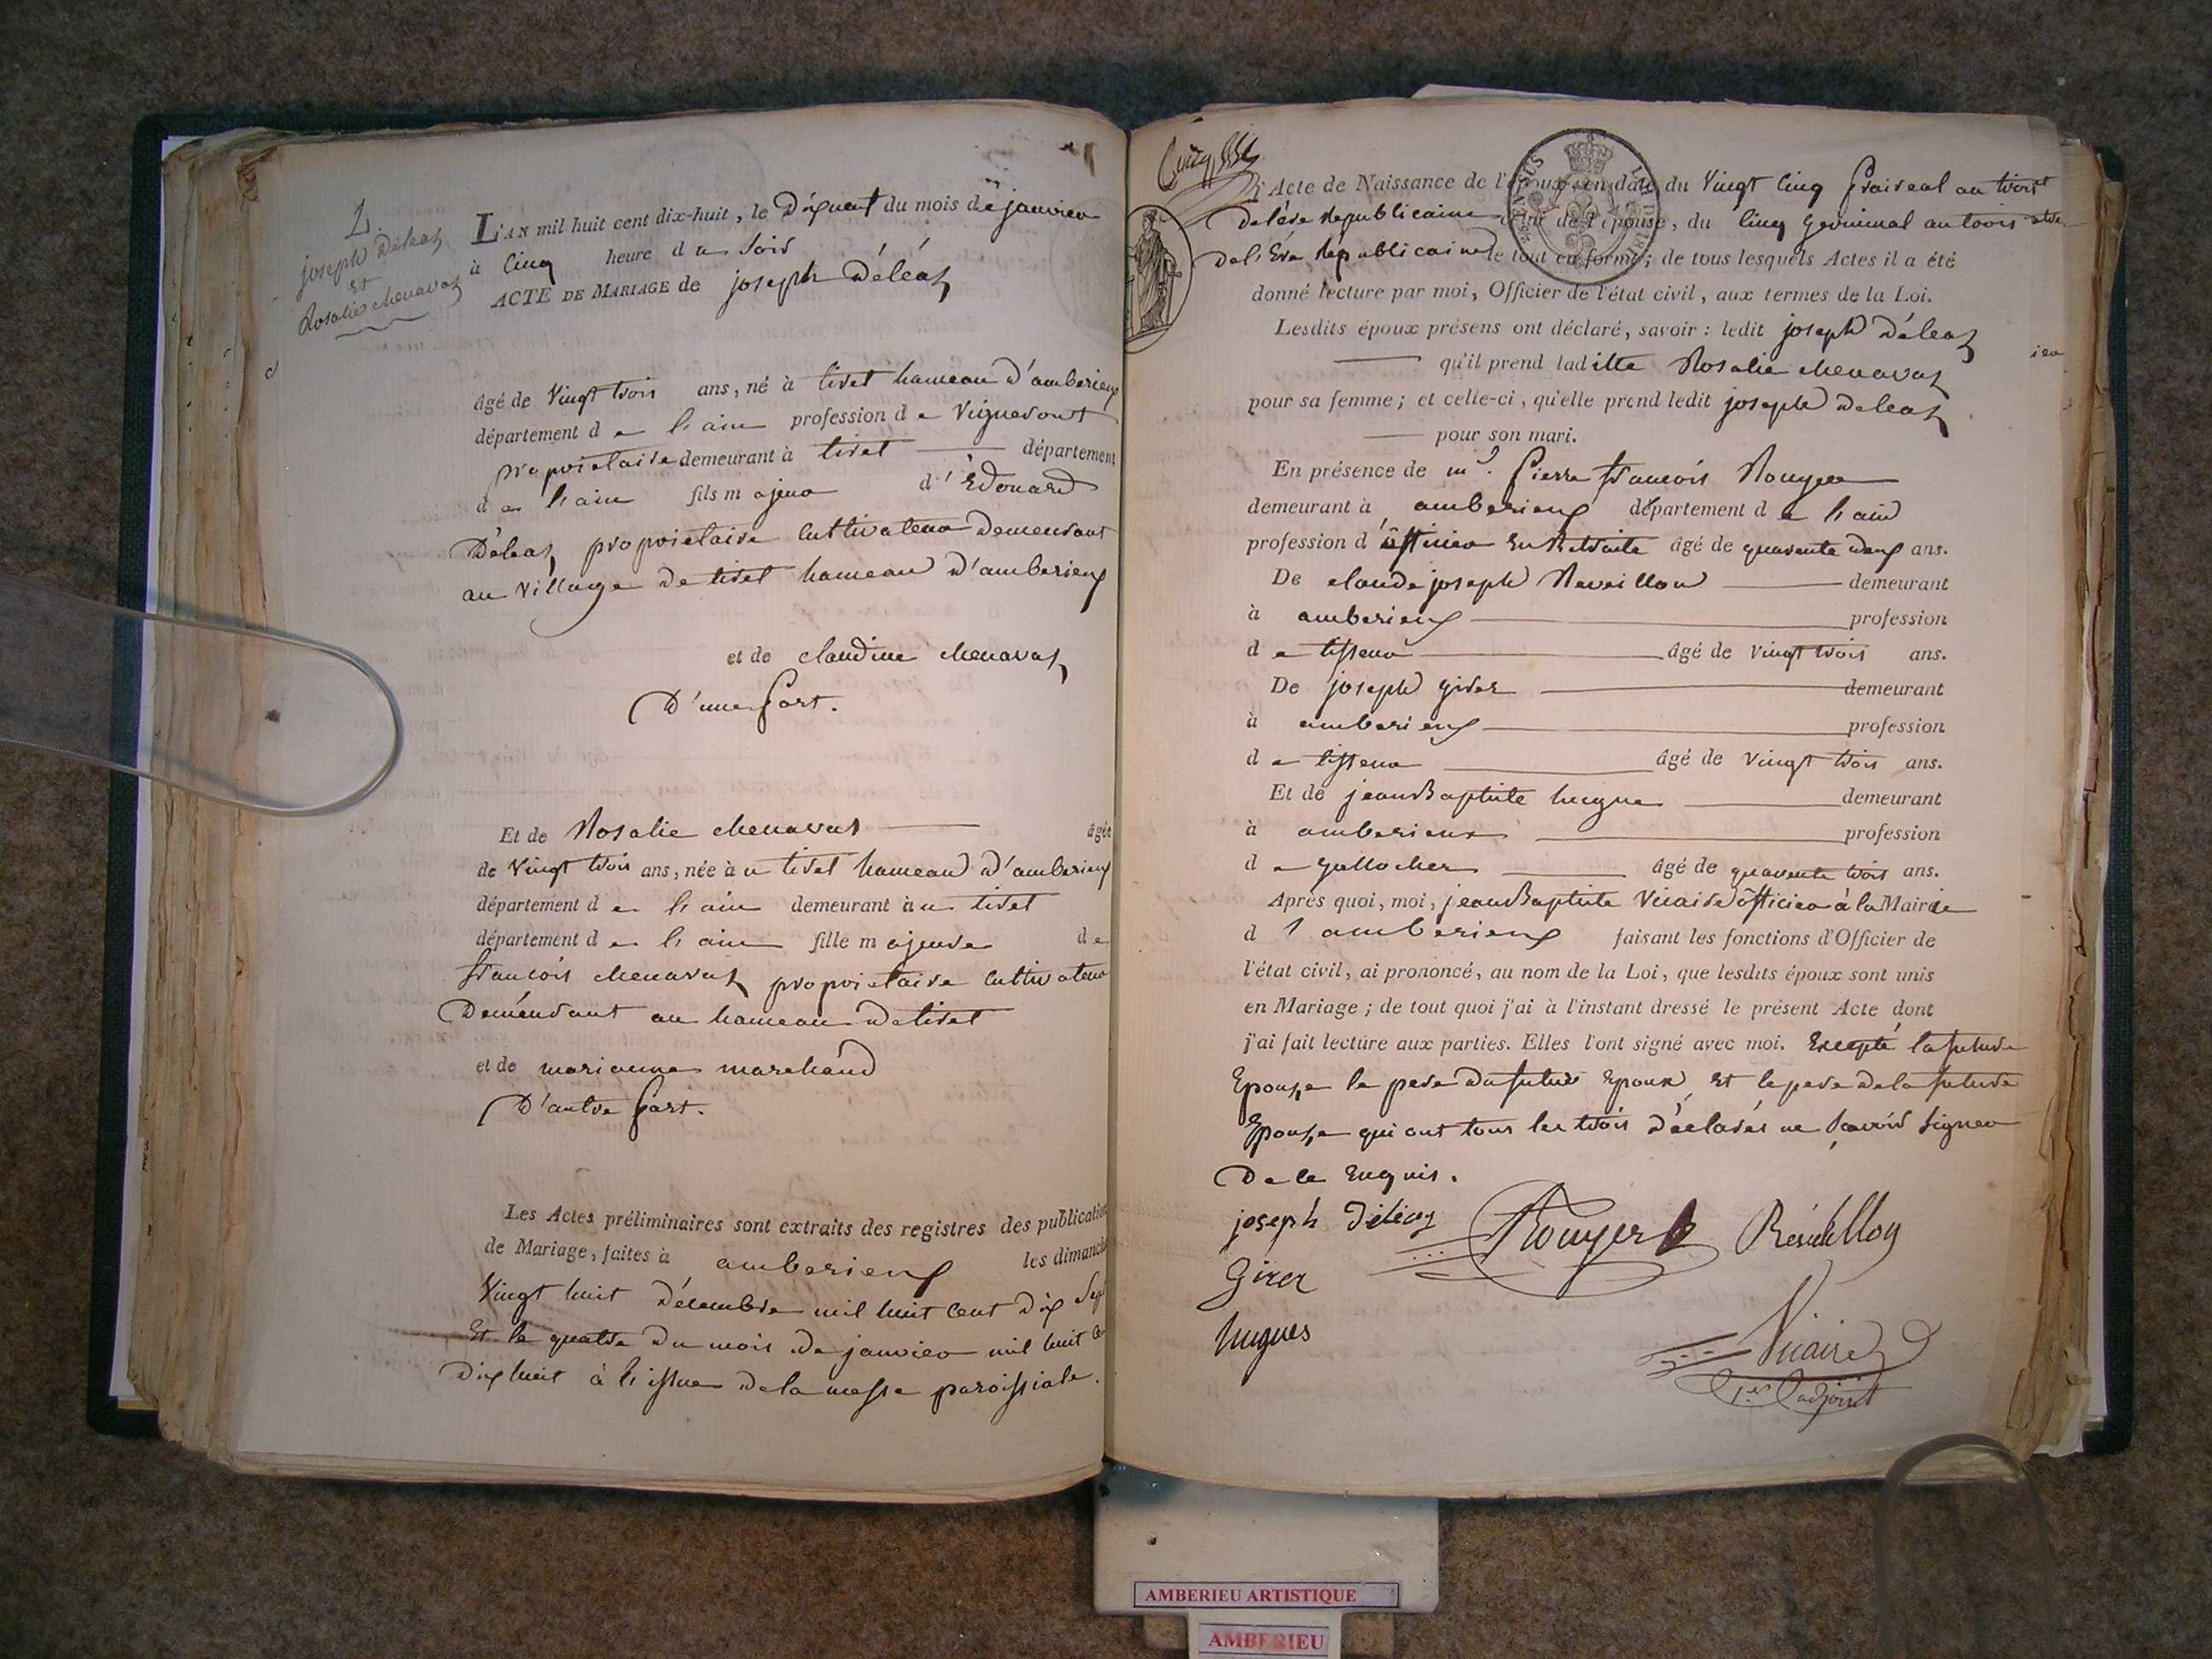 2.
joseph Déléaz
et
Rosalie chenavaz
L'AN mil huit cent dix-huit, le Dixneuf du mois de janvier
à Cinq heure du Soir
ACTE DE MARIAGE de joseph Déléaz
âgé de Vingt trois ans, né à tiret hameau d'amberieux
département de l'ain profession de Vigneront
propriétaire demeurant à tiret département
de l'ain fils majeur d'Edouard
Déleaz propriétaire Cultivateur Demeurant
au Village de tiret hameau d'amberieux
et de claudine chenavaz
D'une Part.
Et de Rosalie chenavaz âgée
de Vingt trois ans, née à u tiret hameau d'amberieux
département de l'ain demeurant à u tiret
département de l'ain fille majeure de
francois chenavaz propriétaire Cultivateur
Demeurant au hameau de tiret
et de marianne marchand
D'autre Part.
Les Actes préliminaires sont extraits des registres des publication
de Mariage, faites à amberieux les dimanche
Vingt huit décembre mil huit Cent Dix Sept
Et le quatre du mois de janvier mil huit Ce
Dix huit à l'issue de la messe paroissiale.
L'Acte de Naissance de l'époux en date du Vingt Cinq Prairéal an trois
de l'ére Républicaine celui de l'épouse, du Cinq germinal an trois
de l'Ere Républicaine le tout en forme; de tous lesquels Actes il a été
donné lecture par moi, Officier de l'état civil, aux termes de la Loi.
Lesdits époux présens ont déclaré, savoir: ledit joseph Déleaz
qu'il prend laditte Rosalie chenavaz
pour sa femme; et celle-ci, qu'elle prend ledit joseph Deleaz
pour son mari.
En présence de mr. Pierre francois Rouyer
demeurant à amberieux département de l'ain
profession d'officier En Retraite âgé de quarante deux ans.
De claude joseph Reveillon demeurant
à amberieux profession
de tisseur âgé de Vingt trois ans.
De joseph girer demeurant
à amberieux profession
de tisseur âgé de Vingt trois ans.
Et de jean Baptiste hugue demeurant
à amberieux profession
de gallocher âgé de quarante trois ans.
Après quoi, moi, jean Baptiste Vicaire officier à la Mairie
d'amberieux faisant les fonctions d'Officier de
l'état civil, ai prononcé, au nom de la Loi, que lesdits époux sont unis
en Mariage; de tout quoi j'ai à l'instant dressé le présent Acte dont
j'ai fait lecture aux parties. Elles l'ont signé avec moi. Excepté la future
Epouse le pere du futur Epoux et le pere de la future
Epouse qui ont tous les trois déclarés ne savoir signer
De ce Enquis.
joseph Déléaz Rouyer Réveillon
Girer
hugues
Vicaire
1er adjoint
AMBERIEU ARTISTIQUE
AMBERIEU